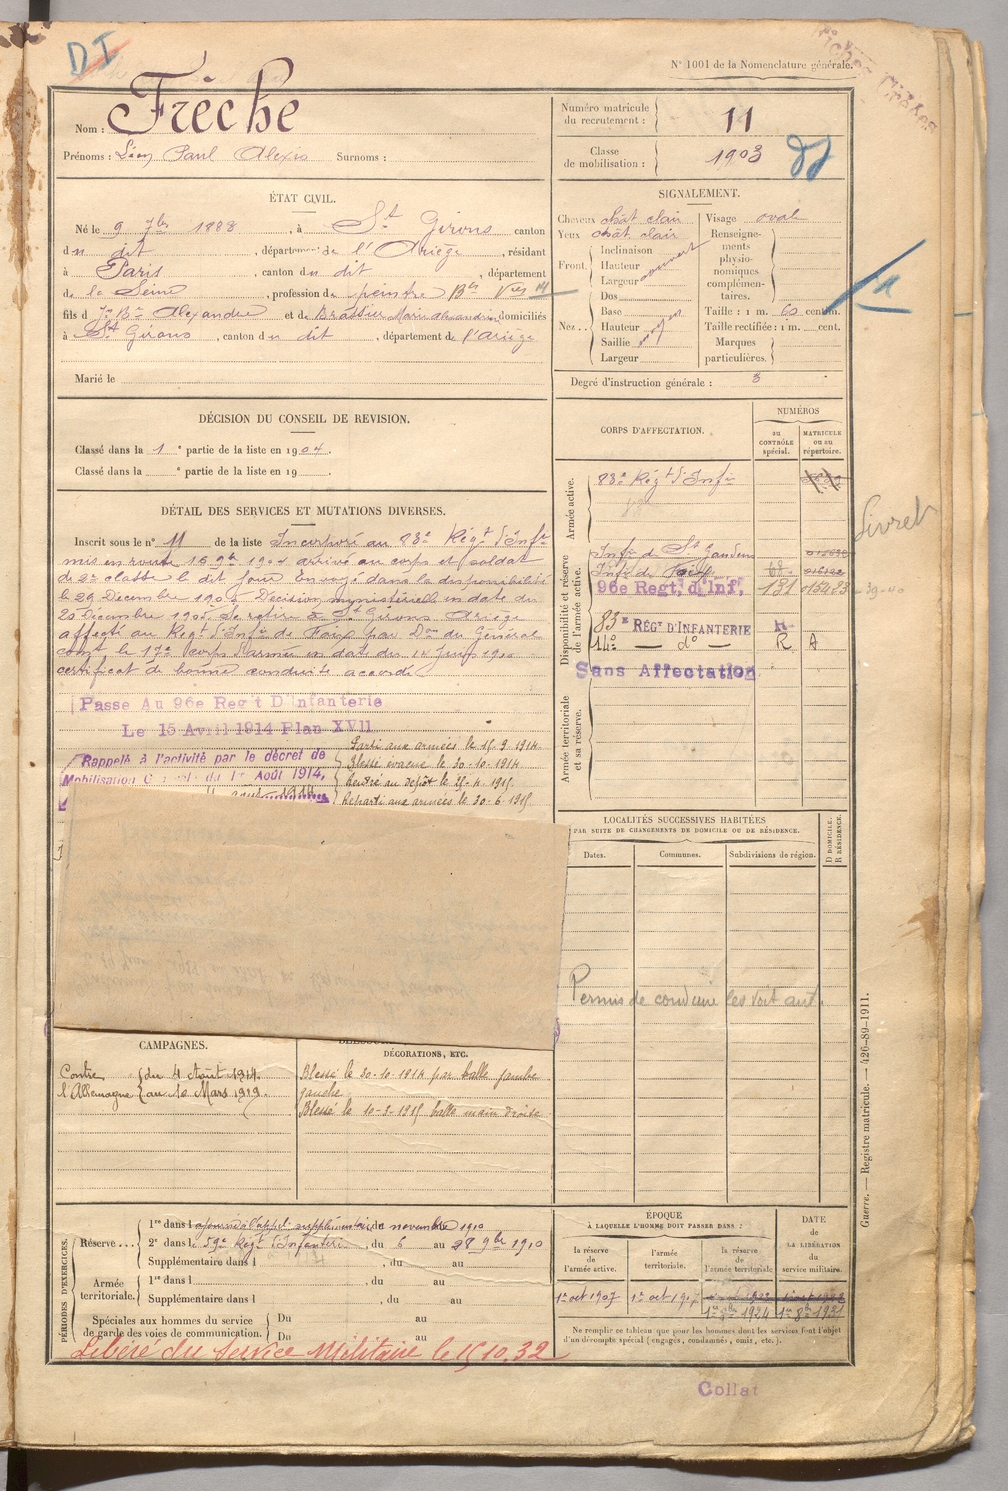 DI
N° 1001 de la Nomenclature générale.
Fiches
Nom : Frèche
Prénoms : Léon Paul Alexis Surnoms :
Numéro matricule du recrutement : 11
Classe de mobilisation : 1903
ÉTAT CIVIL.
Né le 9 7bre 1883, à St Girons canton
du dit, département de l'Ariège, résidant
à Paris, canton du dit, département
de la Seine, profession de peintre
fils d Jn Bte Alexandre et de Brassier Marie Alexandrine domiciliés
à St Girons, canton du dit, département de l'Ariège
Marié le
SIGNALEMENT.
Cheveux chât clair
Yeux chât clair
Front
Inclinaison
Hauteur
Largeur
Nez
Dos
Base
Hauteur
Saillie
Largeur
Visage ovale
Renseignements physionomiques complémentaires.
Taille : 1 m. 60 centim.
Taille rectifiée : 1 m. cent.
Marques particulières.
Degré d'instruction générale : 3
DÉCISION DU CONSEIL DE REVISION.
Classé dans la 1e partie de la liste en 1904.
Classé dans la e partie de la liste en 19
DÉTAIL DES SERVICES ET MUTATIONS DIVERSES.
Inscrit sous le n° 11 de la liste Incorporé au 88e Régt d'Inft
mis en route 16 9bre 1904 arrivé au corps et soldat
de 2e classe le dit jour Envoyé dans la disponibilité
le 29 Décembre 1905 Décision ministérielle en date du
20 Décembre 1905 Se retire à St Girons Ariège
affecté au Régt d'Infie de Foix par Don du Général
Comt le 17e corps d'armée en date du 14 Juin
certificat de bonne conduite accordé
Passe Au 96e Reg't D'Infanterie
Le 15 Avril 1914 Plan XVII
Rappelé à l'activité par le décret de
Mobilisation Générale du 1er Août 1914,
Parti aux armées le 15.9.1914.
Blessé évacué le 30-10-1914.
Rentré au dépôt le 25-4-1915.
Reparti aux armées le 30-6-1915
CORPS D'AFFECTATION.
NUMÉROS
au CONTRÔLE spécial.
MATRICULE ou au répertoire.
Armée active.
88e Régt d'Infie
Disponibilité et réserve de l'armée active.
Infie de St Gaudens
Infie de Foix 68
96e Regt. d'Inf. 131
83e RÉGt D'INFANTERIE
14e — do — R A
Sans Affectation
Armée territoriale et sa réserve.
Livret
LOCALITÉS SUCCESSIVES HABITÉES
PAR SUITE DE CHANGEMENTS DE DOMICILE OU DE RÉSIDENCE.
Dates. Communes. Subdivisions de région.
D DOMICILE.
R RÉSIDENCE.
Permis de conduire les voit aut.
CAMPAGNES.
DÉCORATIONS, ETC.
Contre l'Allemagne { du 4 Août 1914.
au 10 Mars 1919.
Blessé le 30-10-1914 par balle jambe
gauche.
Blessé le 10-3-1915 balle main droite
PÉRIODES D'EXERCICES.
Réserve...
1re dans l ajourné à l'appel supplémentaire de novembre 1910
2e dans le 59e Régt d'Infanterie, du 6 au 28 9bre 1910
Supplémentaire dans l , du au
Armée territoriale.
1re dans l , du au
Supplémentaire dans l , du au
Spéciales aux hommes du service de garde des voies de communication.
Du au
Du au
Libéré du Service Militaire le 15.10.32
ÉPOQUE
À LAQUELLE L'HOMME DOIT PASSER DANS :
la réserve de l'armée active.
l'armée territoriale.
la réserve de l'armée territoriale
DATE de LA LIBÉRATION du service militaire.
1er oct 1907
1er oct 1917
1er 8bre 1924
1er 8bre 1931
Ne remplir ce tableau que pour les hommes dont les services font l'objet
d'un décompte spécial (engagés, condamnés, omis, etc.).
Collat
Guerre. — Registre matricule. — 426-89-1911.